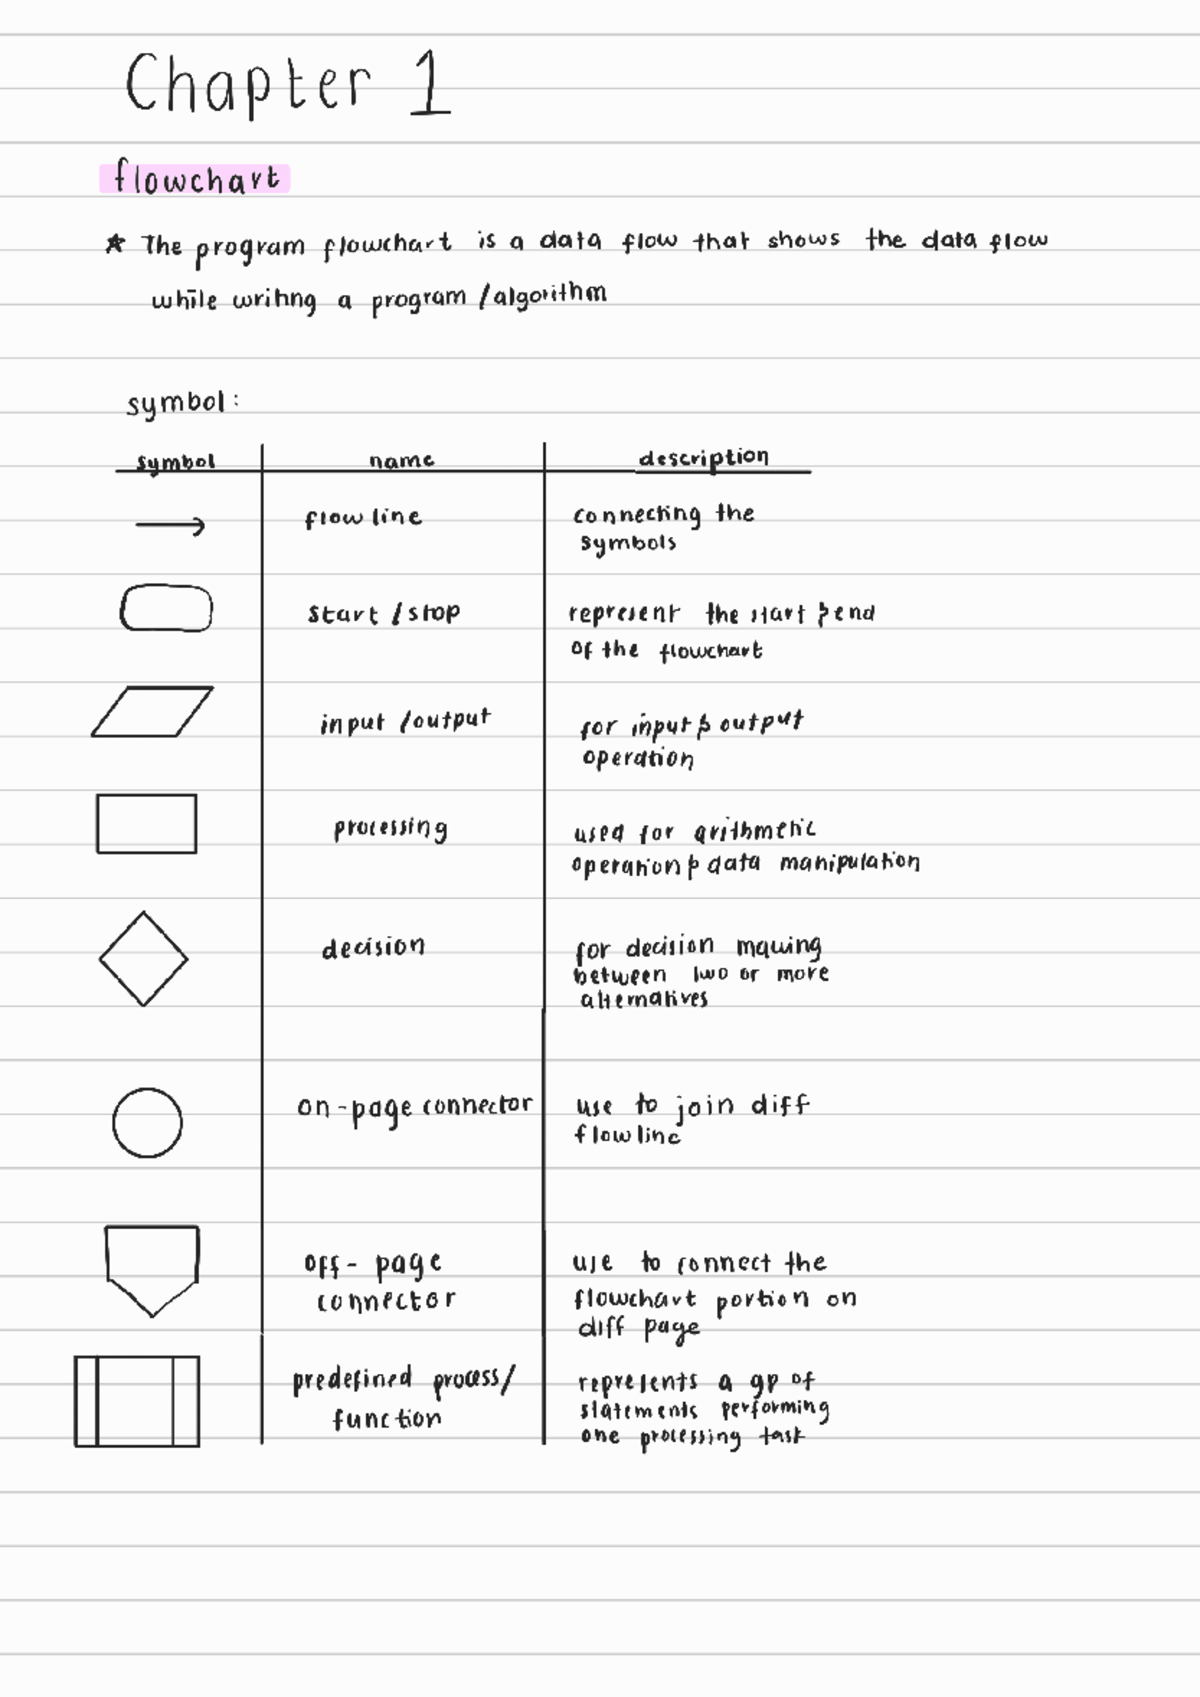 Chapter 1
flowchart
★ The program flowchart is a data flow that shows the data flow
while writing a program /algorithm
symbol:
symbol name description
flow line connecting the
symbols
start /stop represent the start & end
of the flowchart
input /output for input & output
operation
processing used for arithmetic
operation & data manipulation
decision for decision making
between two or more
alternatives
on-page connector use to join diff
flow line
off- page use to connect the
connector flowchart portion on
diff page
predefined process/ represents a gp of
function statements performing
one processing task